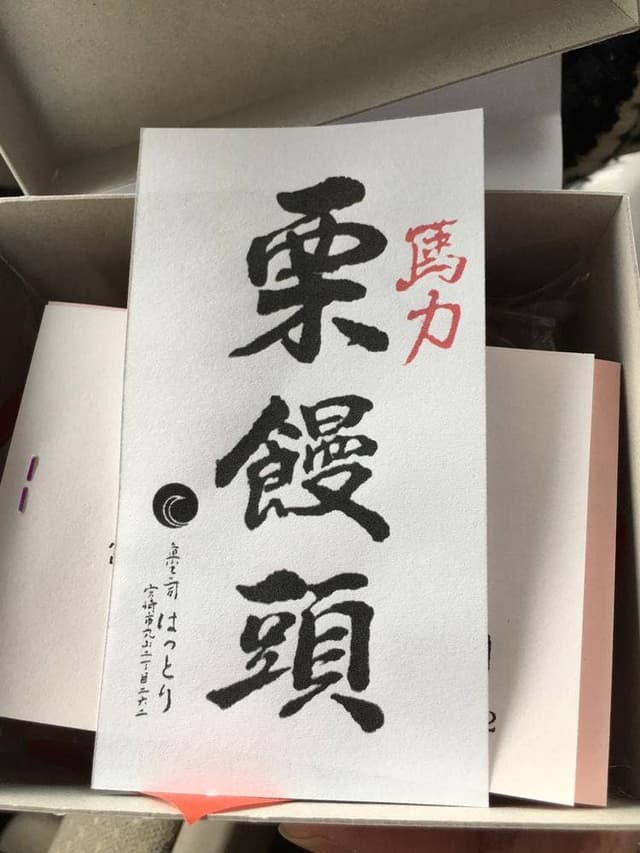 馬力
栗饅頭
菓子司 はっとり
宮崎市丸山二丁目二六二